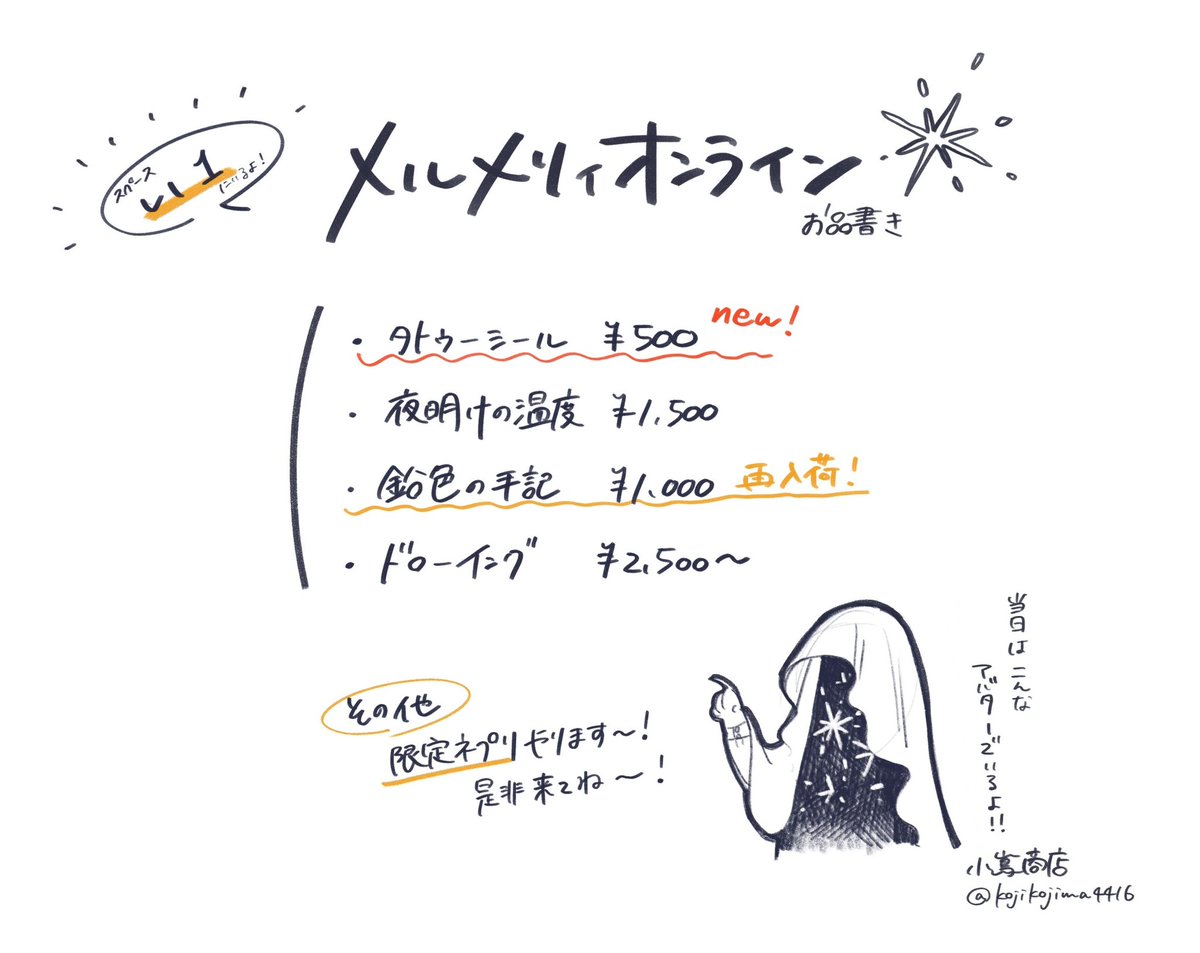 スペース
い1
にいるよ！
メルメリィオンライン
お品書き
・タトゥーシール ¥500 new!
・夜明けの温度 ¥1,500
・鉛色の手記 ¥1,000 再入荷！
・ドローイング ¥2,500〜
その他
限定ネプリやります〜！
是非来てね〜！
当日はこんな
アバターでいるよ!!
小嶌商店
@kojikojima4416